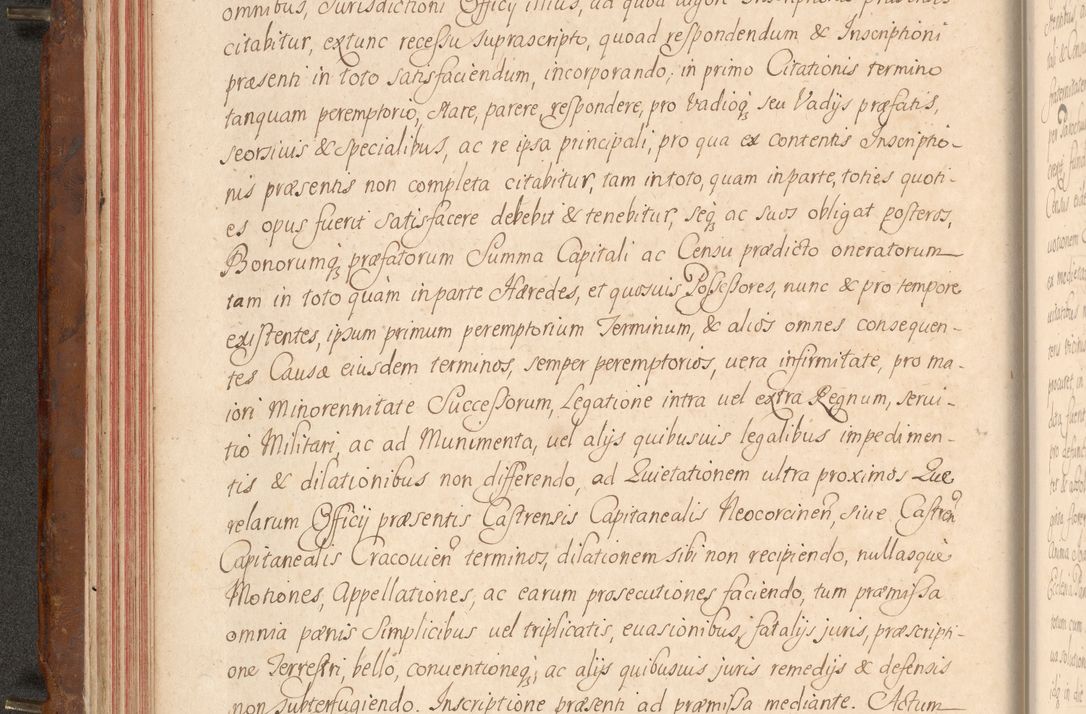 omnibus, Jurisdictioni Officij illius, ad quod
citabitur, extunc recessu suprascripto, quoad respondendum & Inscriptioni
præsenti in toto satisfaciendum, incorporando, in primo Citationis termino
tanquam peremptorio, stare, parere, respondere, pro Vadioq3 seu Vadijs præfatis,
seorsiuis & specialibus, ac re ipsa principali, pro qua ex contentis Inscriptio-
nis præsentis non completa citabitur, tam in toto, quam in parte, toties quoti-
es opus fuerit satisfacere debebit & tenebitur, seq3 ac suos obligat posteros,
Bonorumq3 præfatorum Summa Capitali ac Censu prædicto oneratorum
tam in toto quàm in parte Hæredes, et quosuis Possessores, nunc & pro tempore
existentes, ipsum primum peremptorium Terminum, & alios omnes consequen-
tes Causæ eiusdem terminos, semper peremptorios, uera infirmitate, pro ma-
iori Minorennitate Successorum, Legatione intra uel extra Regnum, serui-
tio Militari, ac ad Munimenta, uel alijs quibusuis legalibus impedimen-
tis & dilationibus non differendo, ad Quietationem ultra proximos Que
relarum Officij præsentis Castrensis Capitanealis Neocorcinen, siue Castren
Capitanealis Cracouien terminos, dilationem sibi non recipiendo, nullasque
Motiones, Appellationes, ac earum prosecutiones faciendo, tum præmissa
omnia pænis Simplicibus uel triplicatis, euasionibus, fatalijs juris, præscripti-
one Terrestri, bello, conuentioneq3, ac alijs quibusuis juris remedijs & defensis
non subterfugiendo. Inscriptione præsenti ad præmissa mediante. Actum